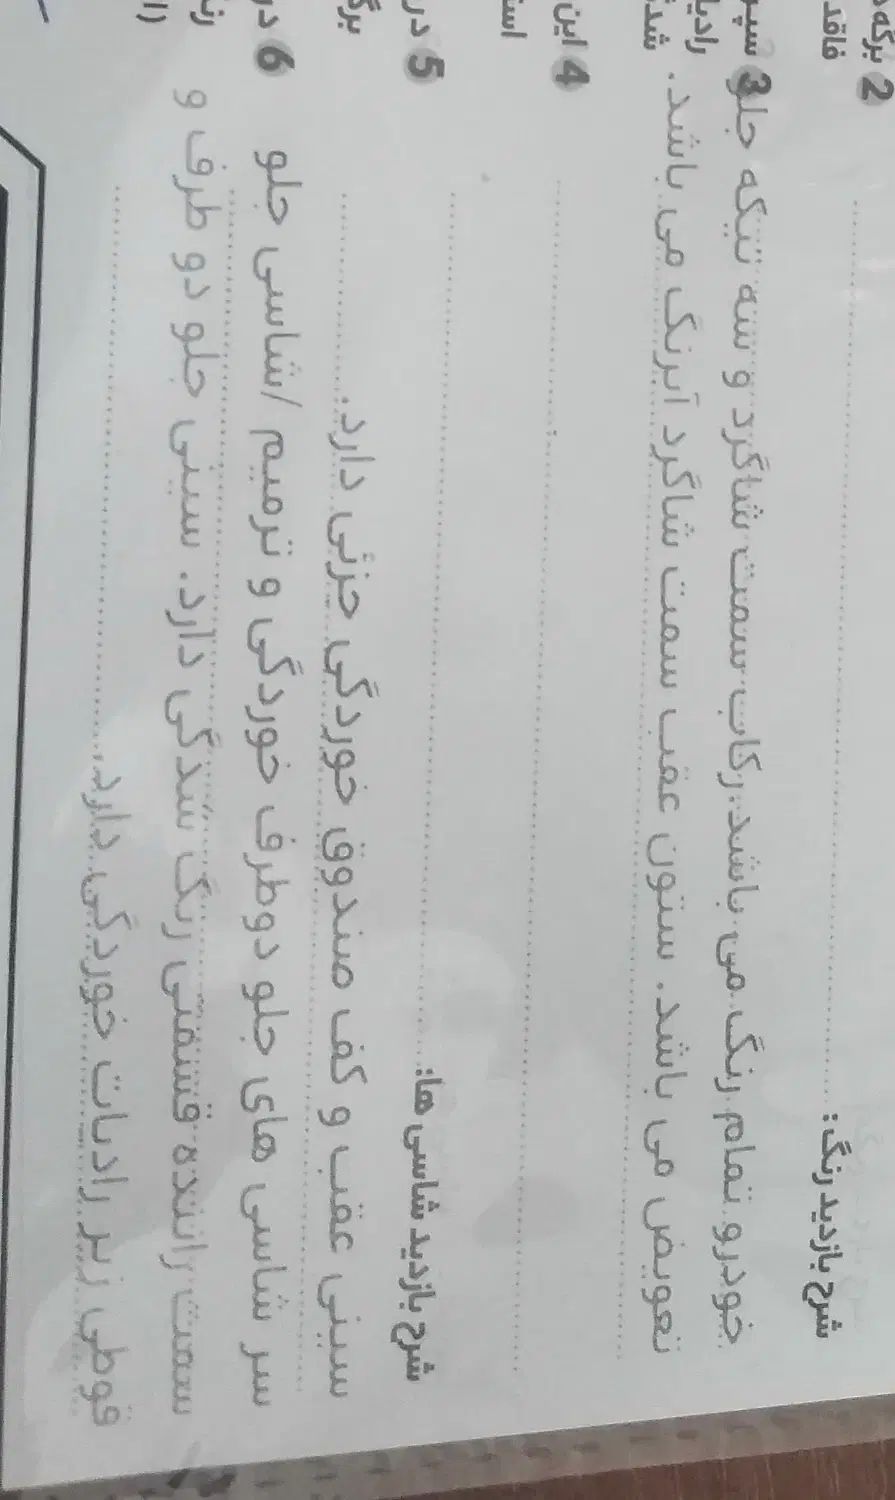 شرح بازدید رنگ:
خودرو تمام رنگ می باشد. رکاب سمت شاگرد و سه تیکه جلو
تعویض می باشد. ستون عقب سمت شاگرد آبرنگ می باشد.
شرح بازدید شاسی ها:
سینی عقب و کف صندوق خوردگی جزئی دارد.
سر شاسی های جلو دوطرف خوردگی و ترمیم /شاسی جلو
سمت راننده قسمتی رنگ شدگی دارد. سینی جلو دو طرف و
قوطی زیر رادیات خوردگی دارد.
2 برگه
فاقد
3 سپر
رادیا
شد
4 این
است
5 در
برگ
6 در